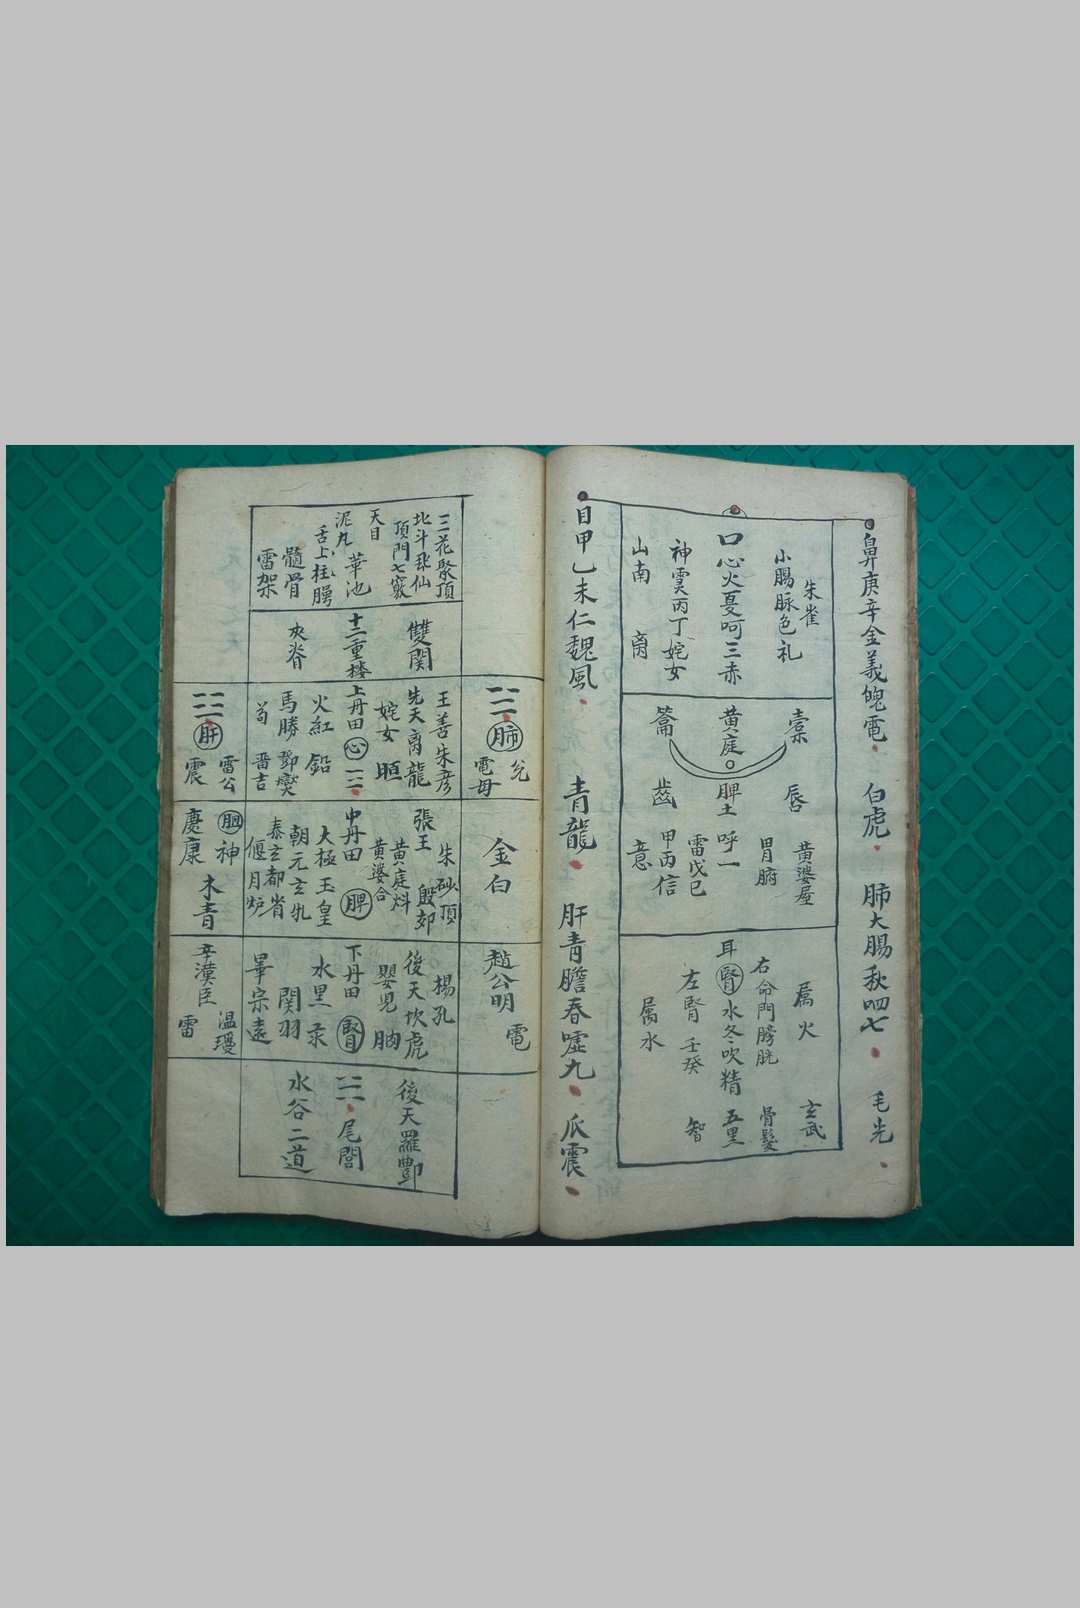 鼻庚辛金義魄電
白虎
肺大腸秋呬七
毛先
朱雀
小腸脉色礼
口心火夏呵三赤
神霐丙丁姹女
山南
橐
唇
黃婆屋
胃腑
黃庭
脾土呼一
雷戊巳
甲丙信
籥
齒
意
厲火
玄武
右命門膀胱
骨髮
耳腎水冬吹精
五里
左腎壬癸
智
厲水
目甲乙未仁魏風
青龍
肝青膽春噓九
爪震
肺
兊
電母
金白
趙公明
電
三花聚頂
北斗
仙
頂門七竅
天目
華池
泥丸
舌上柱腭
髓骨
雷架
雙関
十二重楼
夾脊
王善朱彦
先天离龍
姹女
上丹田心
火紅鉛
馬勝鄧燮
晋吉
朱砂頂
張王殷郊
黃庭
黃婆合
中丹田脾
大極玉皇
朝元玄牝
泰玄都省
偃月炉
楊孔
後天坎虎
嬰児
下丹田腎
水黑汞
関羽
畢宗遠
後天羅酆
尾閭
水谷二道
肝
雷公
震
胆神
木青
慶康
辛漢臣
温瓊
雷